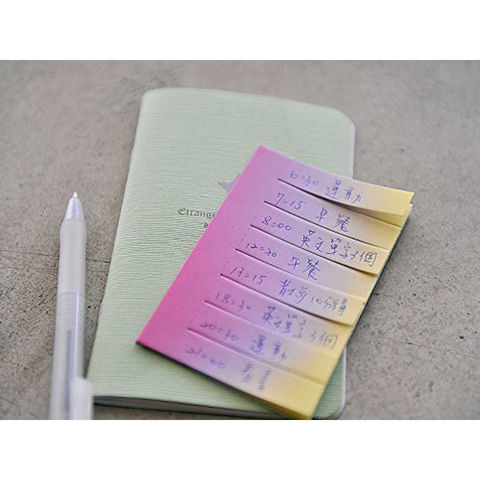 Etrange
6:30 運動
7:15 早餐
8:00 英文單字3個
12:30 午餐
13:15 散步10分鐘
18:30 英文單字3個
20:30 運動